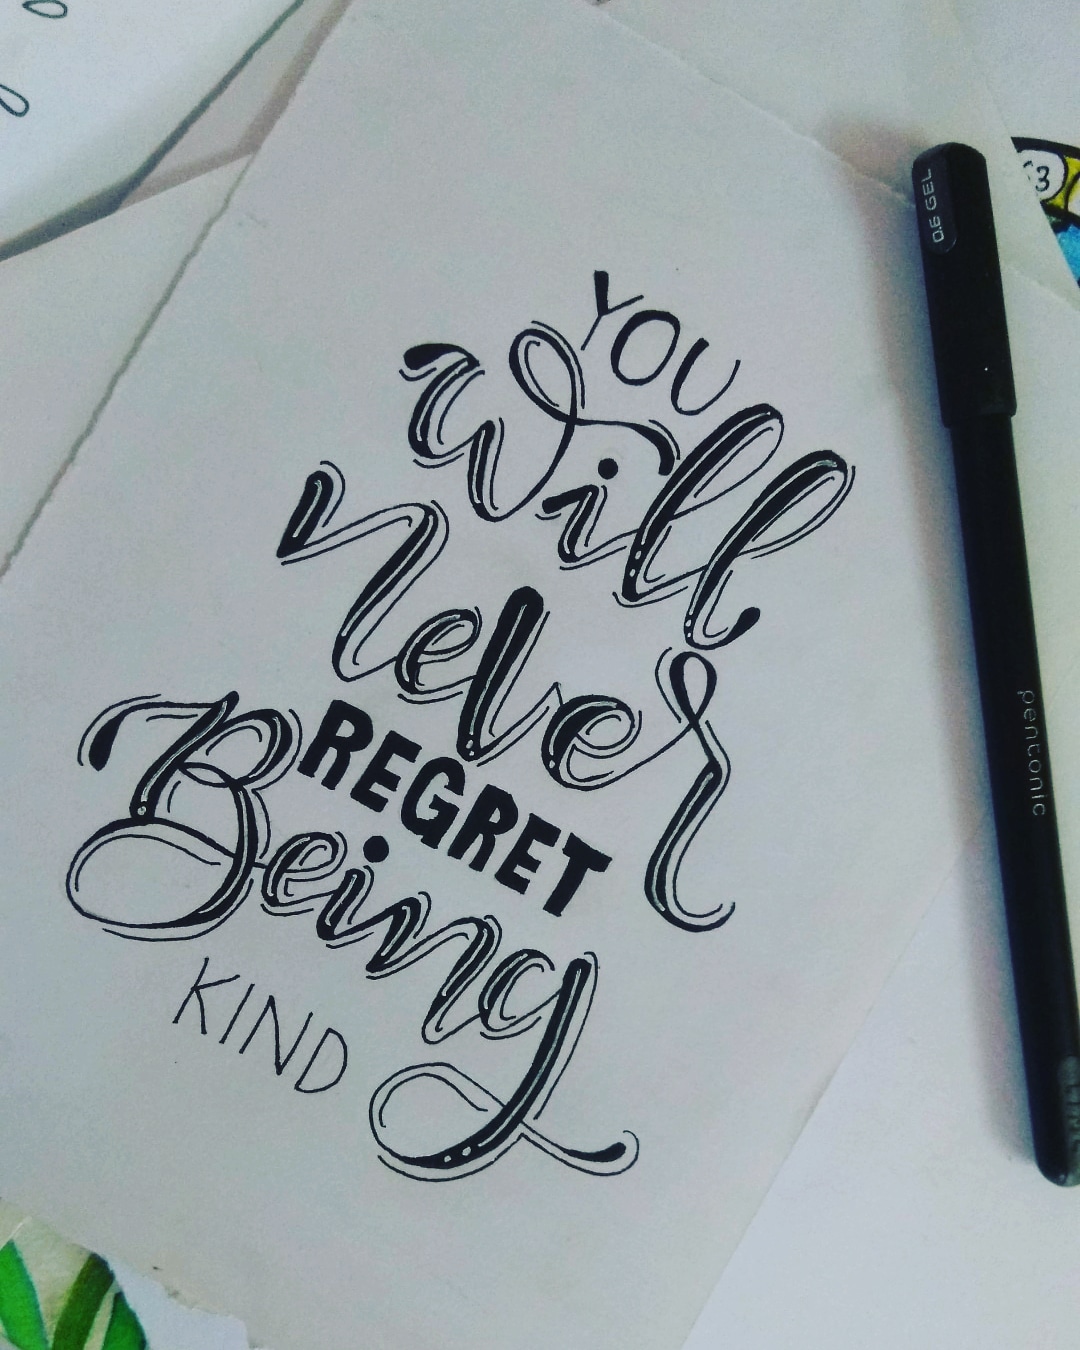 YOU
will
never
REGRET
Being
KIND
0.6 GEL
pentonic
3